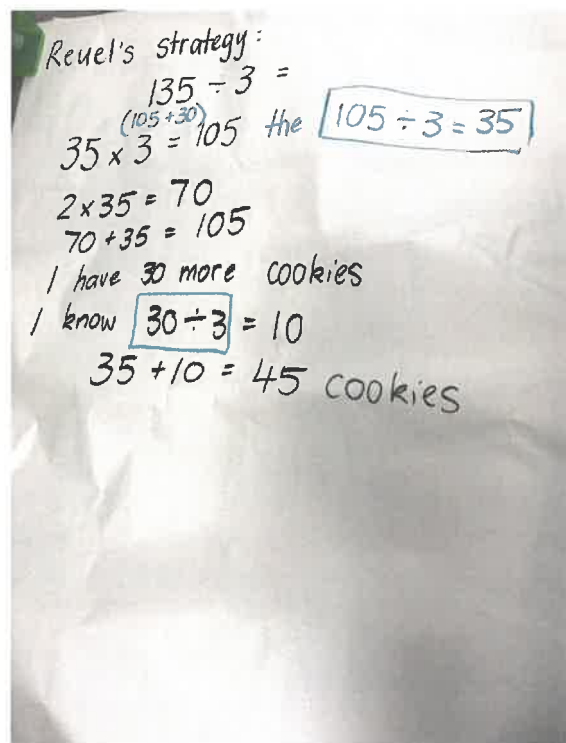 Reuel's strategy:
135 ÷ 3 =
(105 + 30)
35 × 3 = 105 the 105 ÷ 3 = 35
2 × 35 = 70
70 + 35 = 105
I have 30 more cookies
I know 30 ÷ 3 = 10
35 + 10 = 45 cookies